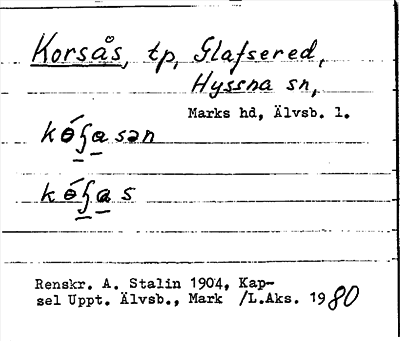 Korsås, tp, Glafsered,
Hyssna sn,
Marks hd, Älvsb. l.
Renskr. A. Stalin 1904, Kap-
sel Uppt. Älvsb., Mark /L.Aks. 1980